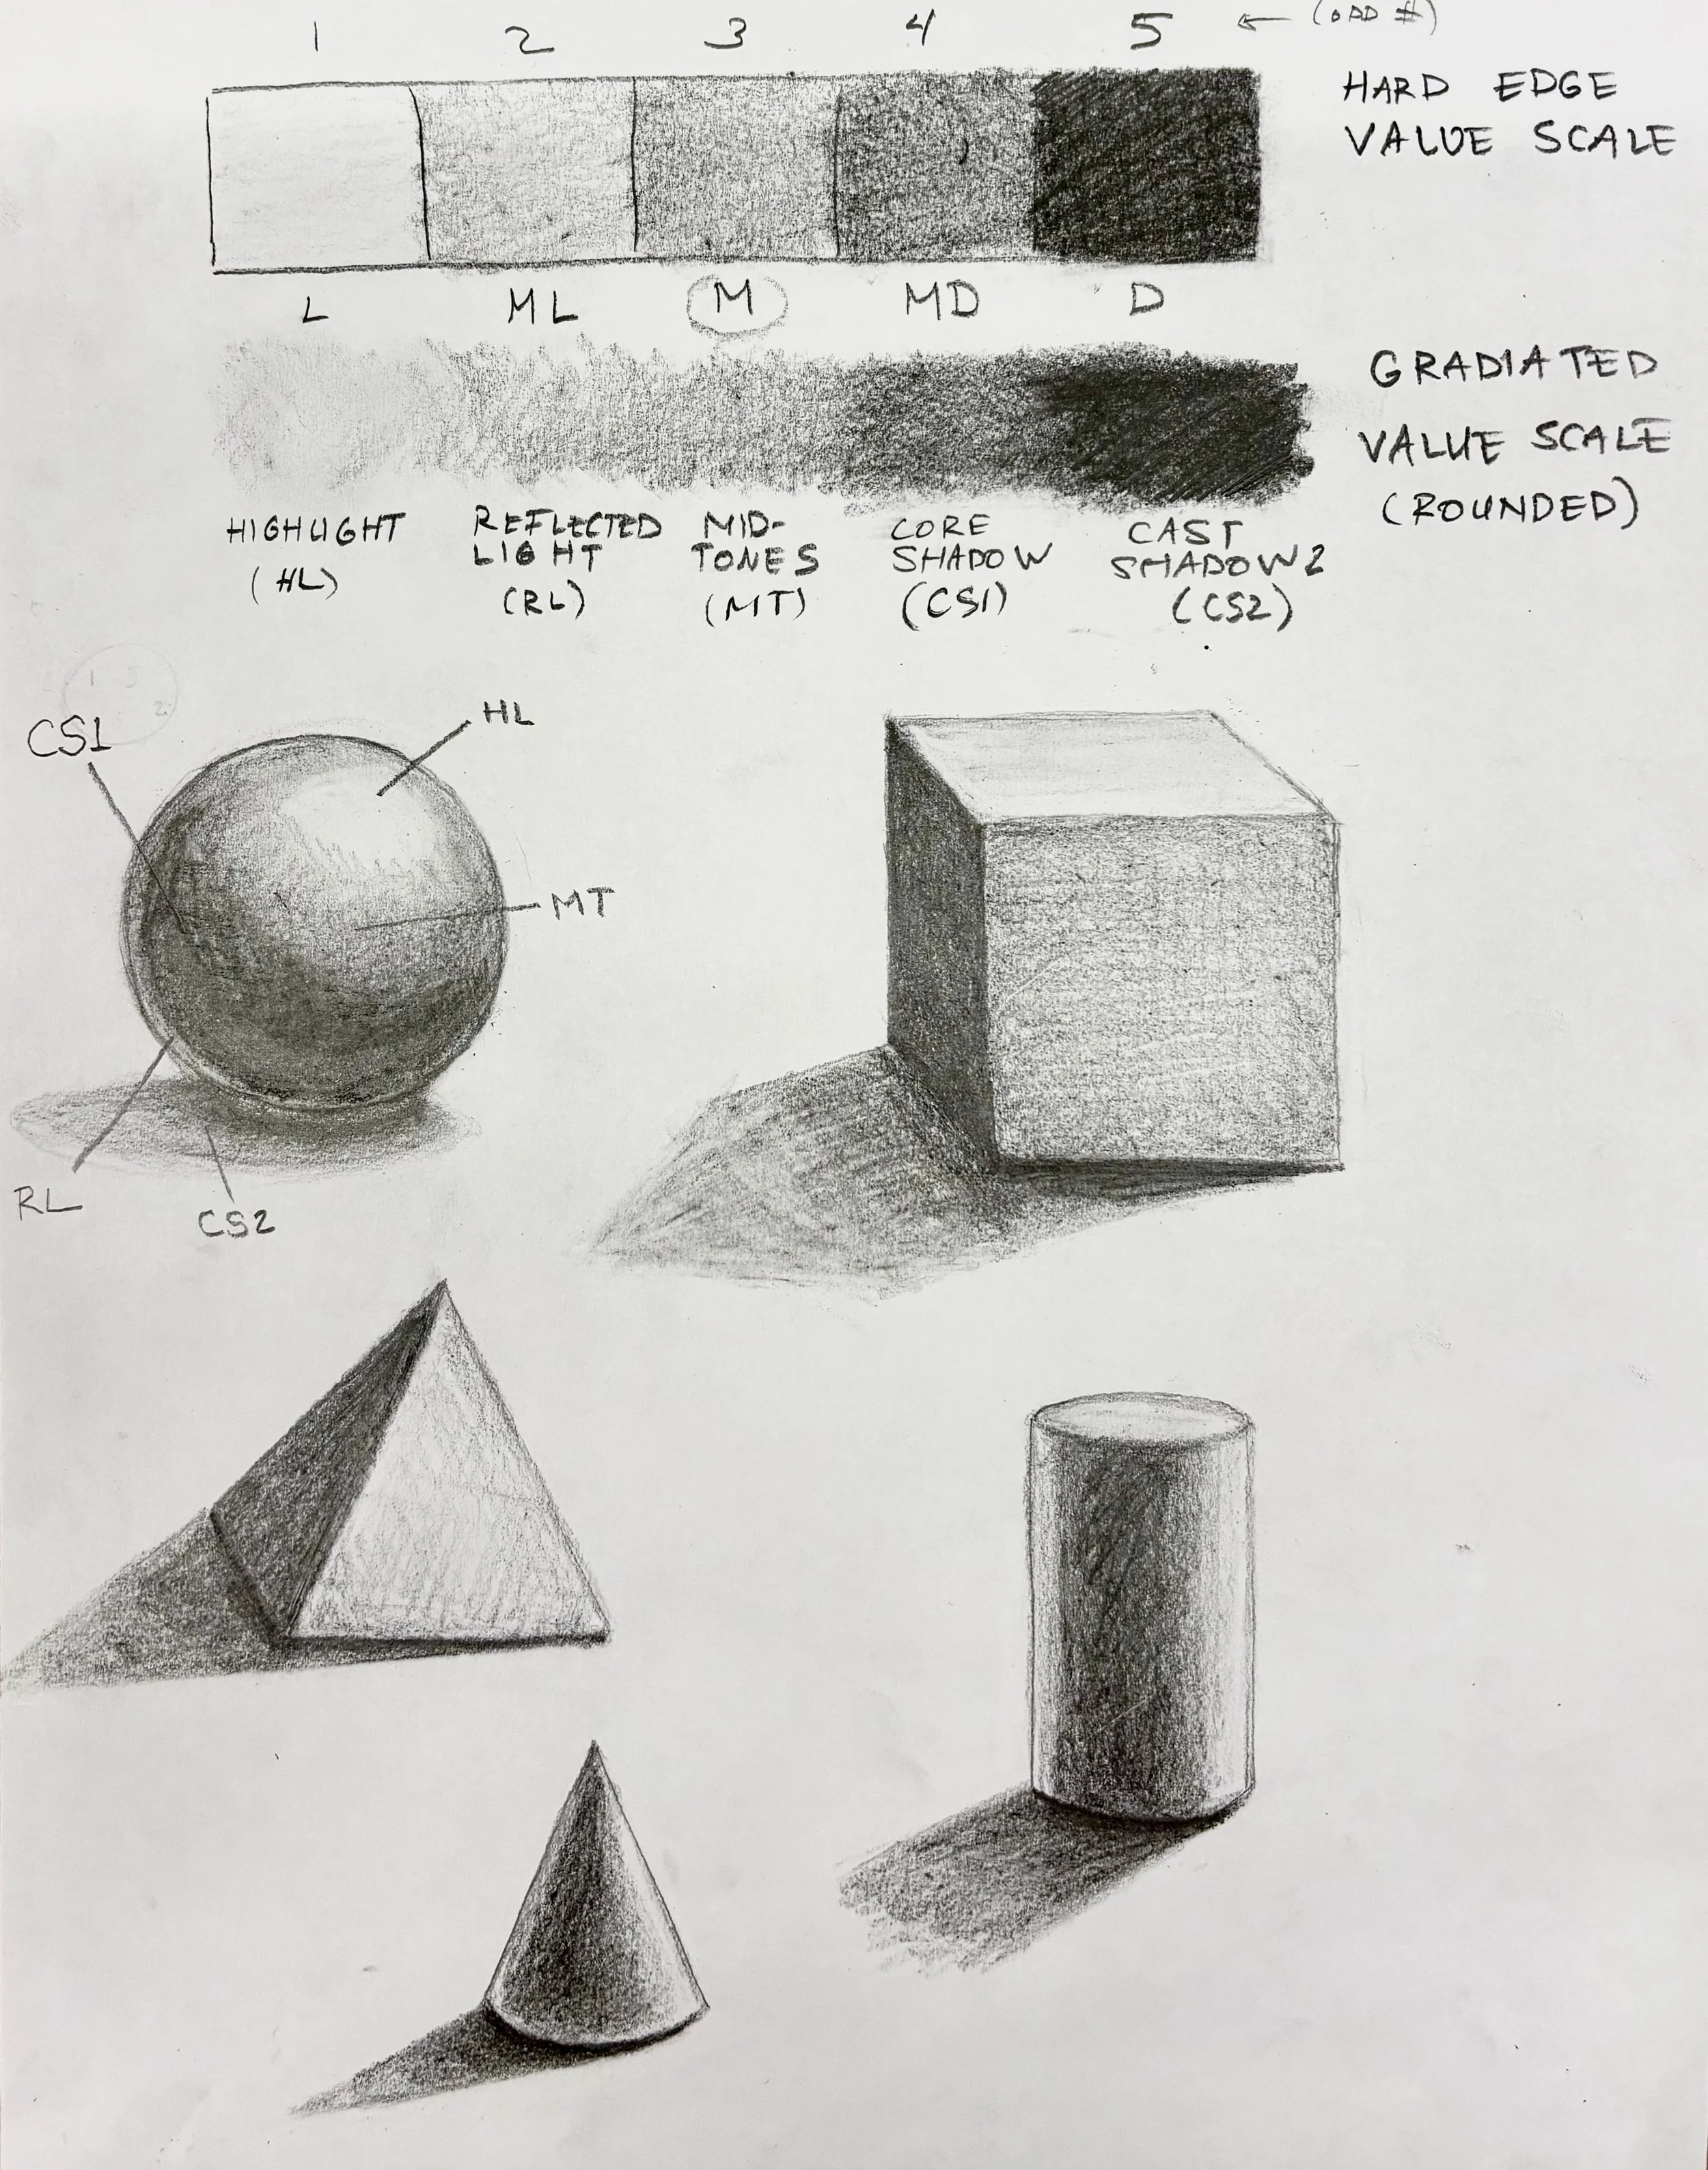 1 2 3 4 5 ← (ODD #)
HARD EDGE
VALUE SCALE
L ML M MD D
GRADIATED
VALUE SCALE
(ROUNDED)
HIGHLIGHT
(HL)
REFLECTED
LIGHT
(RL)
MID-
TONES
(MT)
CORE
SHADOW
(CS1)
CAST
SHADOW 2
(CS2)
CS1
HL
MT
RL
CS2